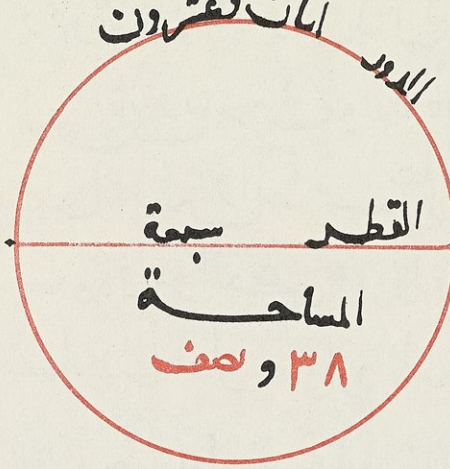 الدور اثنان وعشرون
القطر سبعة
المساحة
٣٨ ونصف